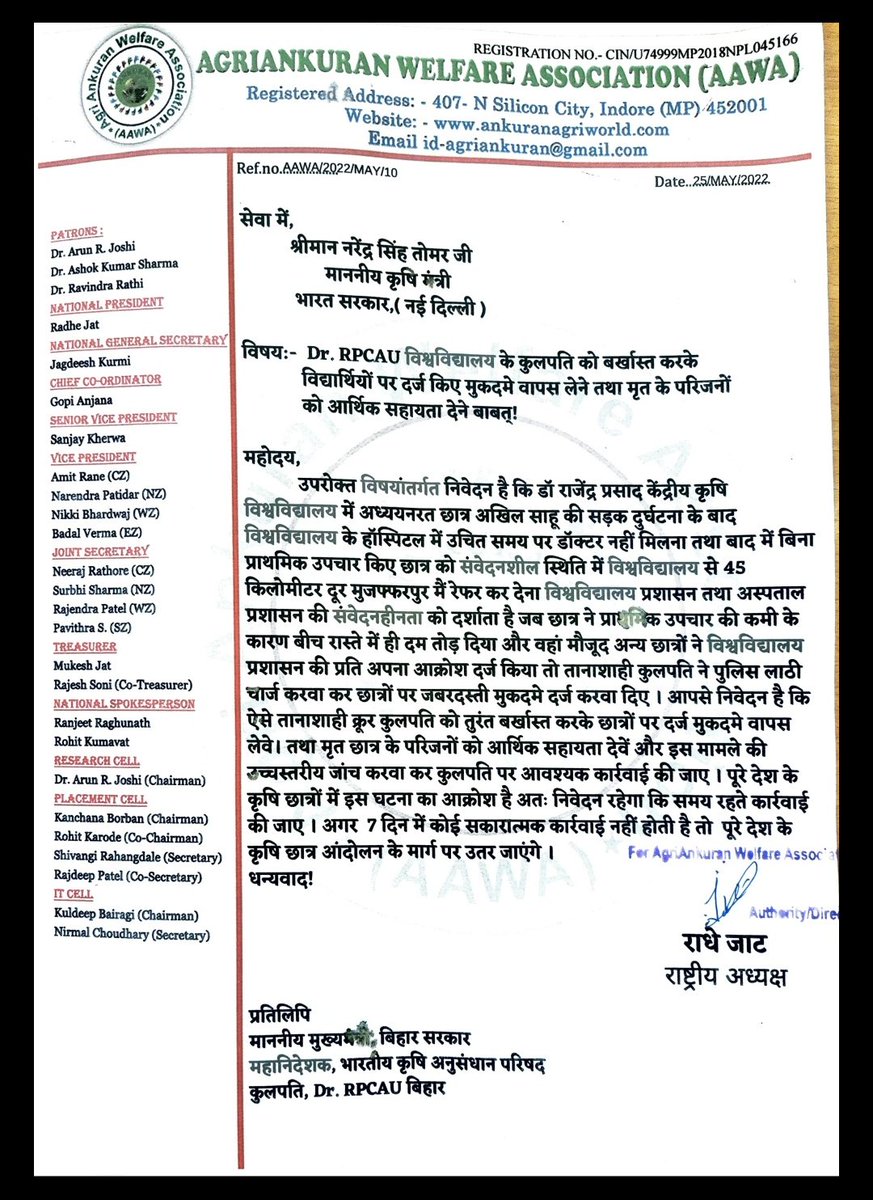 REGISTRATION NO.- CIN/U74999MP2018NPL045166
Agri Ankuran Welfare Association
(AAWA)
AGRIANKURAN WELFARE ASSOCIATION (AAWA)
Registered Address: - 407- N Silicon City, Indore (MP) 452001
Website: - www.ankuranagriworld.com
Email id-agriankuran@gmail.com
Ref.no.AAWA/2022/MAY/10
Date..25/MAY/2022
PATRONS :
Dr. Arun R. Joshi
Dr. Ashok Kumar Sharma
Dr. Ravindra Rathi
NATIONAL PRESIDENT
Radhe Jat
NATIONAL GENERAL SECRETARY
Jagdeesh Kurmi
CHIEF CO-ORDINATOR
Gopi Anjana
SENIOR VICE PRESIDENT
Sanjay Kherwa
VICE PRESIDENT
Amit Rane (CZ)
Narendra Patidar (NZ)
Nikki Bhardwaj (WZ)
Badal Verma (EZ)
JOINT SECRETARY
Neeraj Rathore (CZ)
Surbhi Sharma (NZ)
Rajendra Patel (WZ)
Pavithra S. (SZ)
TREASURER
Mukesh Jat
Rajesh Soni (Co-Treasurer)
NATIONAL SPOKESPERSON
Ranjeet Raghunath
Rohit Kumavat
RESEARCH CELL
Dr. Arun R. Joshi (Chairman)
PLACEMENT CELL
Kanchana Borban (Chairman)
Rohit Karode (Co-Chairman)
Shivangi Rahangdale (Secretary)
Rajdeep Patel (Co-Secretary)
IT CELL
Kuldeep Bairagi (Chairman)
Nirmal Choudhary (Secretary)
सेवा में,
श्रीमान नरेंद्र सिंह तोमर जी
माननीय कृषि मंत्री
भारत सरकार,( नई दिल्ली )
विषय:- Dr. RPCAU विश्वविद्यालय के कुलपति को बर्खास्त करके
विद्यार्थियों पर दर्ज किए मुकदमे वापस लेने तथा मृत के परिजनों
को आर्थिक सहायता देने बाबत्!
महोदय,
उपरोक्त विषयांतर्गत निवेदन है कि डॉ राजेंद्र प्रसाद केंद्रीय कृषि
विश्वविद्यालय में अध्ययनरत छात्र अखिल साहू की सड़क दुर्घटना के बाद
विश्वविद्यालय के हॉस्पिटल में उचित समय पर डॉक्टर नहीं मिलना तथा बाद में बिना
प्राथमिक उपचार किए छात्र को संवेदनशील स्थिति में विश्वविद्यालय से 45
किलोमीटर दूर मुजफ्फरपुर मैं रेफर कर देना विश्वविद्यालय प्रशासन तथा अस्पताल
प्रशासन की संवेदनहीनता को दर्शाता है जब छात्र ने प्राथमिक उपचार की कमी के
कारण बीच रास्ते में ही दम तोड़ दिया और वहां मौजूद अन्य छात्रों ने विश्वविद्यालय
प्रशासन की प्रति अपना आक्रोश दर्ज किया तो तानाशाही कुलपति ने पुलिस लाठी
चार्ज करवा कर छात्रों पर जबरदस्ती मुकदमे दर्ज करवा दिए । आपसे निवेदन है कि
ऐसे तानाशाही क्रूर कुलपति को तुरंत बर्खास्त करके छात्रों पर दर्ज मुकदमे वापस
लेवे। तथा मृत छात्र के परिजनों को आर्थिक सहायता देवें और इस मामले की
उच्चस्तरीय जांच करवा कर कुलपति पर आवश्यक कार्रवाई की जाए । पूरे देश के
कृषि छात्रों में इस घटना का आक्रोश है अतः निवेदन रहेगा कि समय रहते कार्रवाई
की जाए । अगर 7 दिन में कोई सकारात्मक कार्रवाई नहीं होती है तो पूरे देश के
कृषि छात्र आंदोलन के मार्ग पर उतर जाएंगे ।
धन्यवाद!
For AgriAnkuran Welfare Associat
Authority/Direc
राधे जाट
राष्ट्रीय अध्यक्ष
प्रतिलिपि
माननीय मुख्यमंत्री, बिहार सरकार
महानिदेशक, भारतीय कृषि अनुसंधान परिषद
कुलपति, Dr. RPCAU बिहार